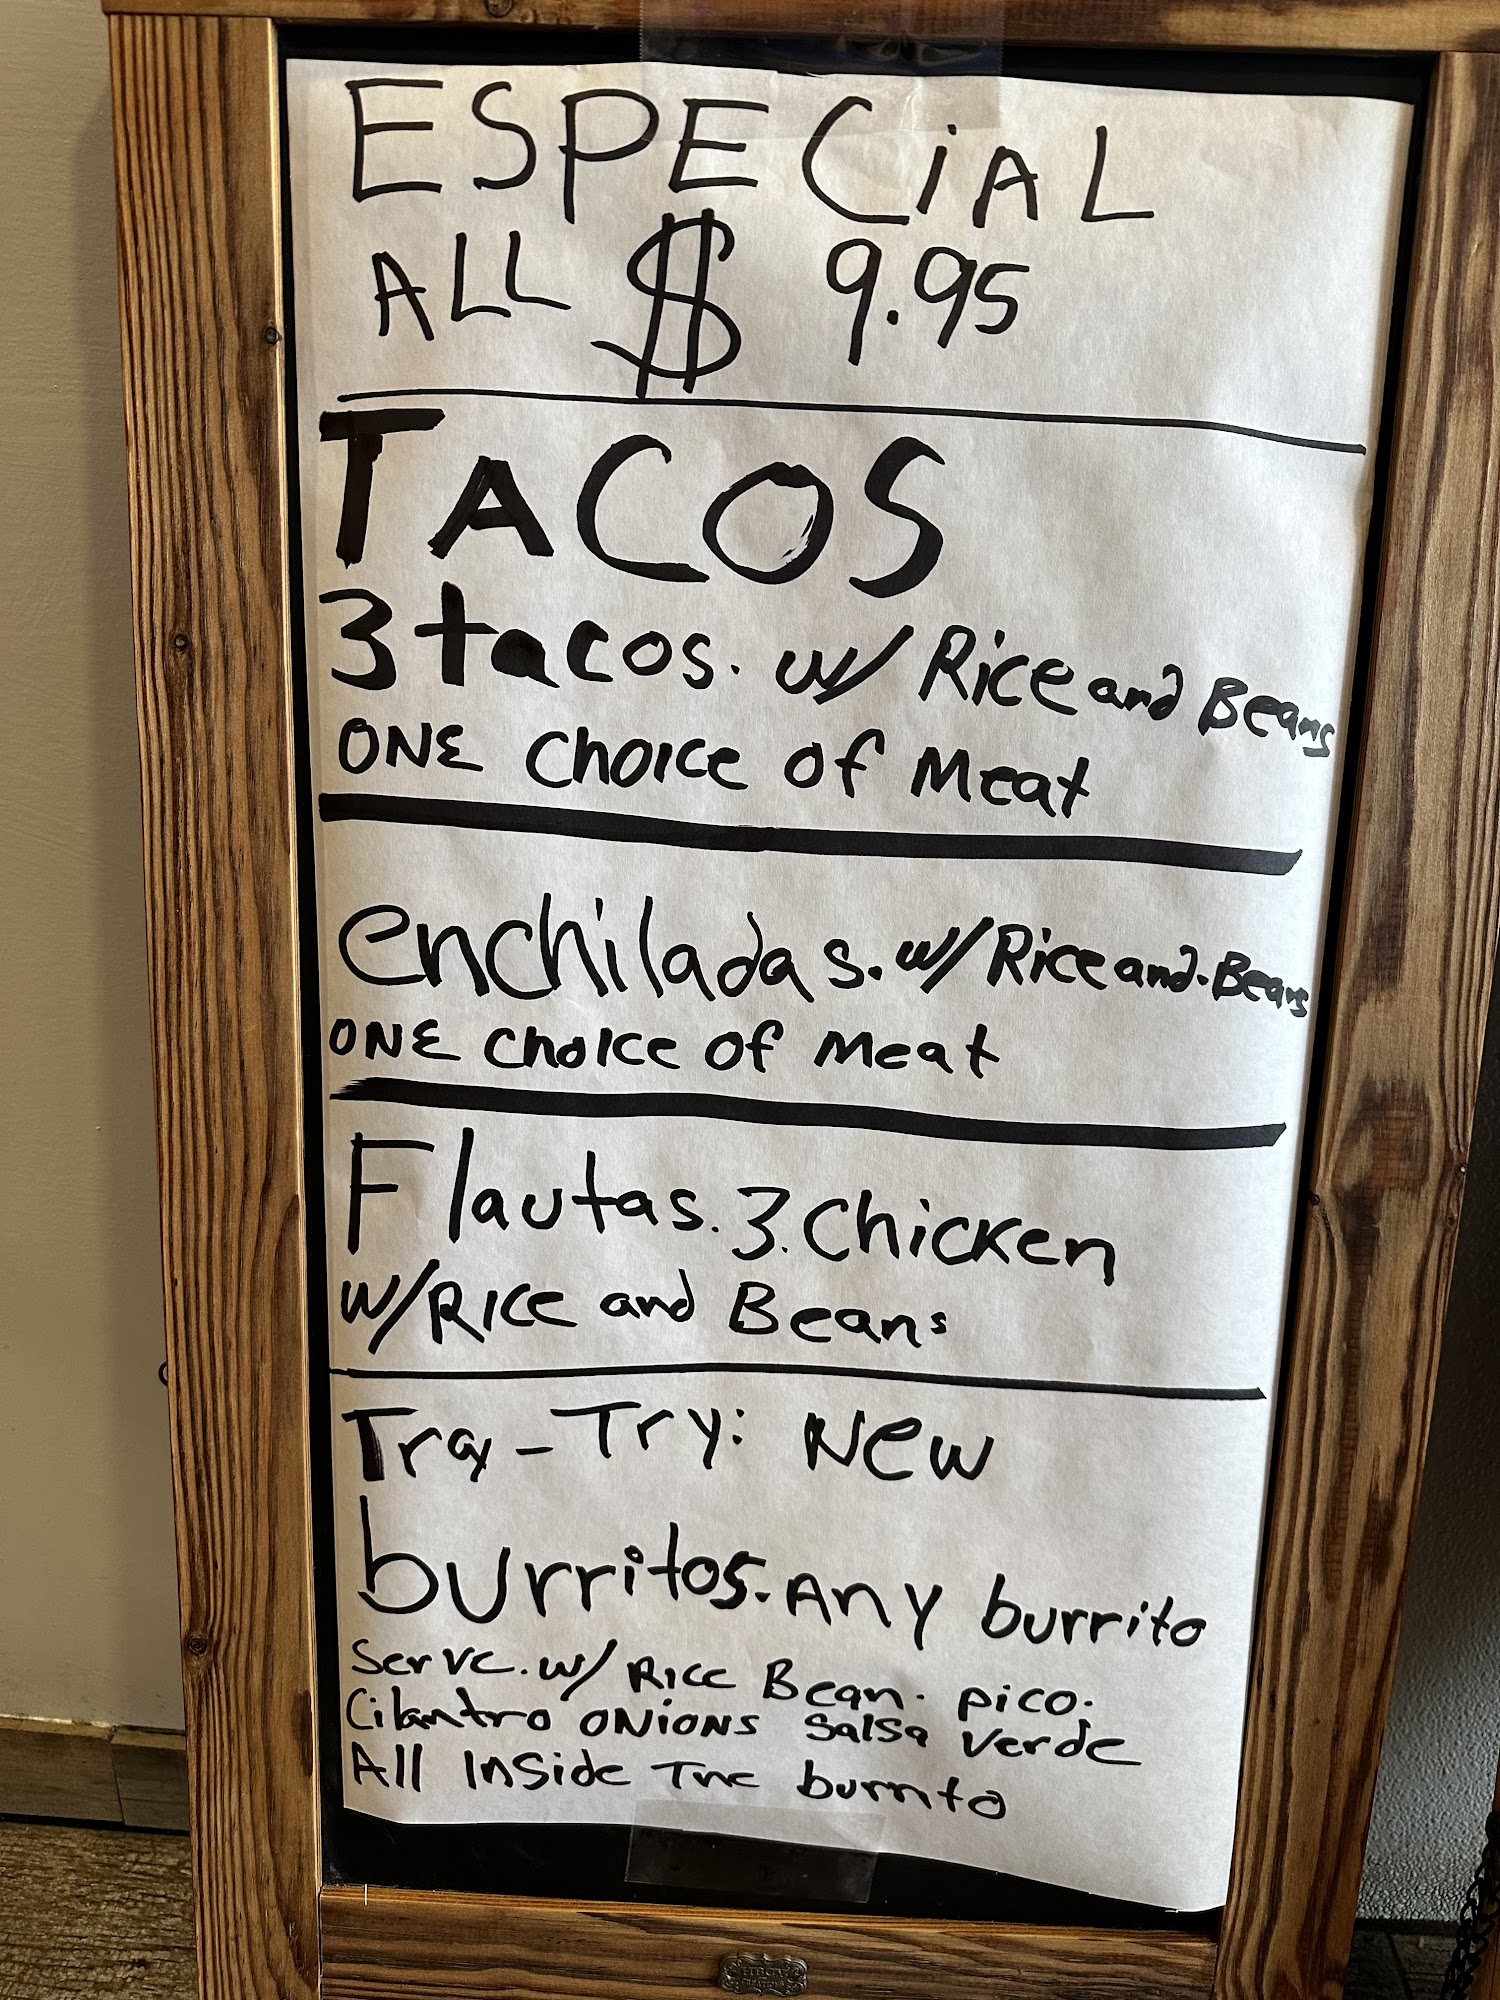 ESPECiAL
ALL $ 9.95
TACOS
3 tacos. w/ Rice and Beans
ONE Choice of Meat
enchiladas. w/ Rice and. Beans
ONE Choice of Meat
Flautas. 3. Chicken
w/ Rice and Beans
Tray - Try: New
burritos. Any burrito
Serve. w/ Rice Bean. pico.
Cilantro ONIONS Salsa Verde
All Inside The burrito